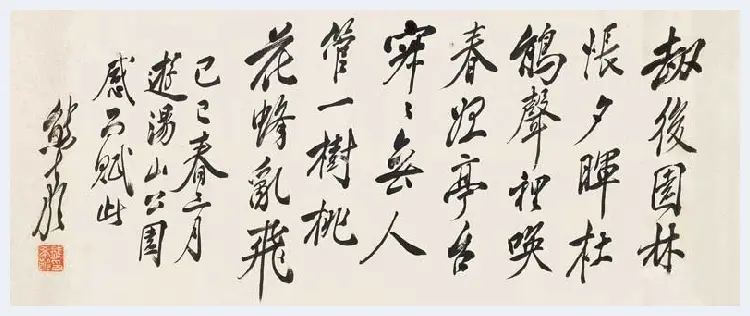 劫後園林
悵夕暉杜
鵑聲裡喚
春歸亭台
寂〻無人
管一樹桃
花蜂亂飛
己巳春三月
遊湯山公園
感而賦此
熊